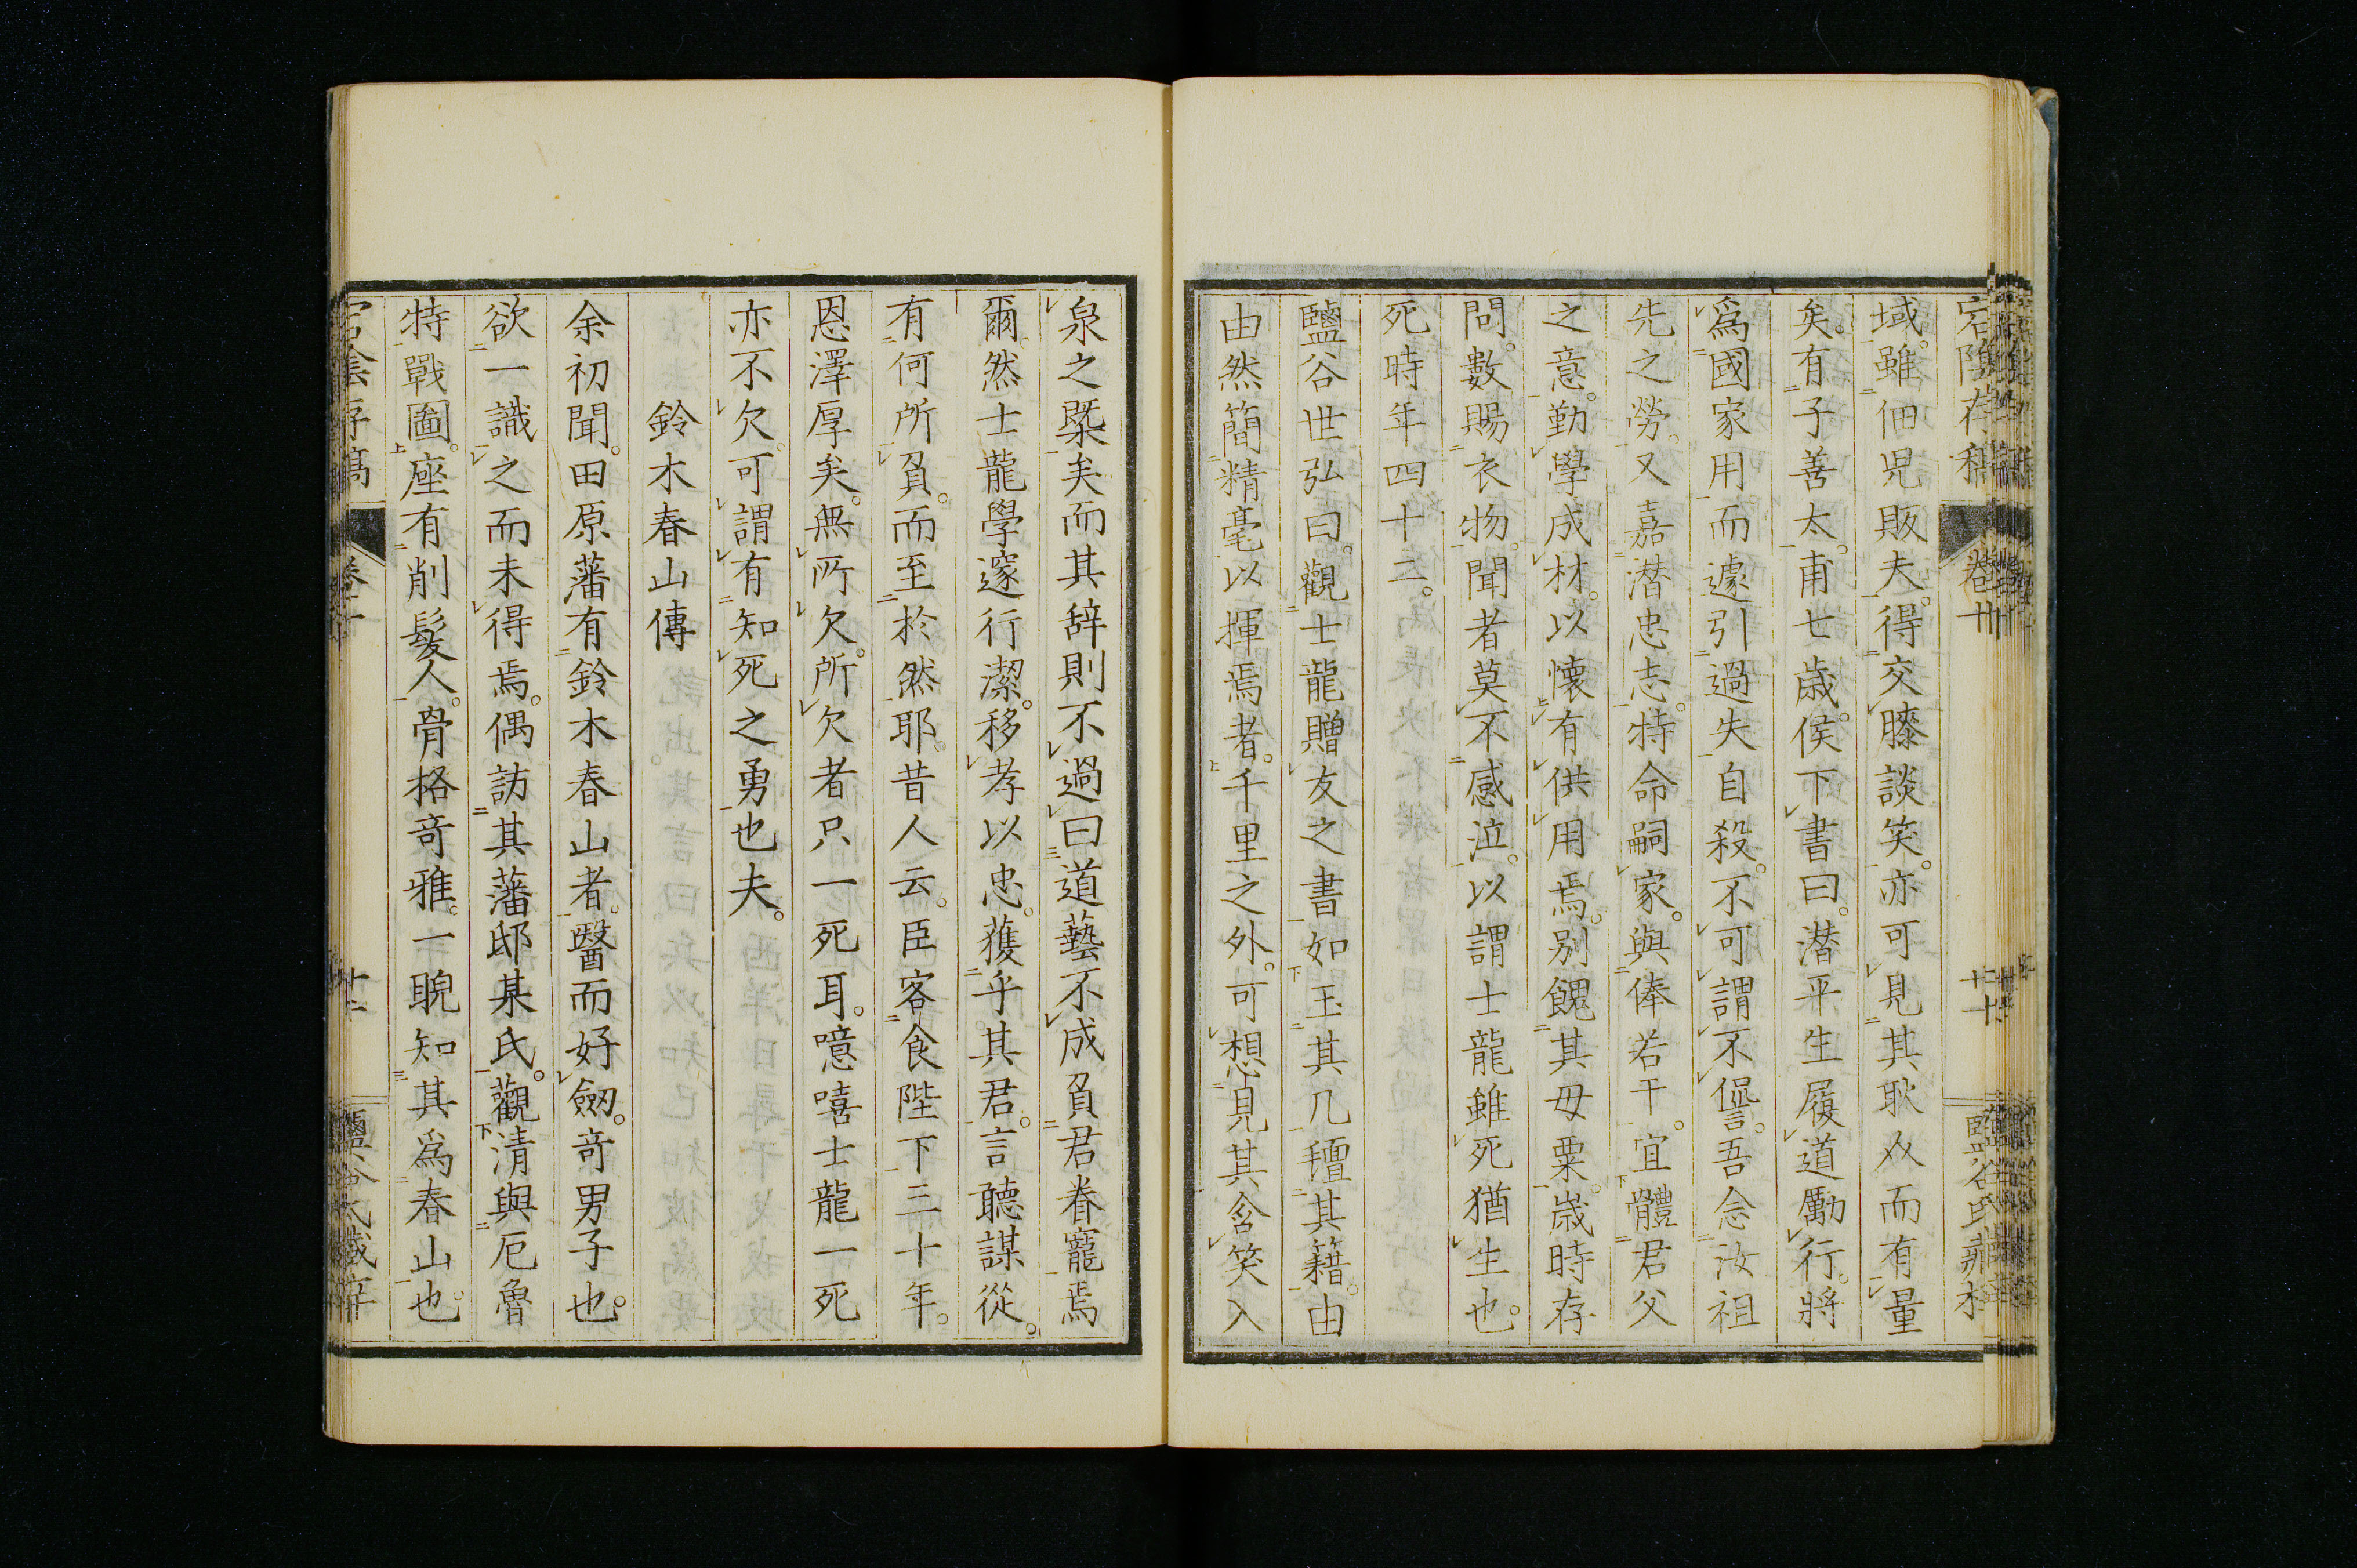 域。雖佃児販夫。得交膝談笑。亦可見其耿介而有量
矣。有子善太。甫七歳。侯下書曰。潜平生履道勵行。將
爲國家用。而遽引過失自殺。不可謂不諐。吾念汝祖
先之勞。又嘉潜忠志。特命嗣家。與俸若干。宜體君父
之意。勤學成材。以懐有供用焉。別餽其母粟。歳時存
問。數賜衣物。聞者莫不感泣。以謂士龍雖死猶生也。
死時年四十二。
鹽谷世弘曰。觀士龍贈友之書。如玉其几。䄠其籍。由
由然簡精毫以揮焉者。千里之外。可想見其含笑入
泉之槩矣。而其辞則不過曰道藝不成負君眷寵焉
爾。然士龍學邃行潔。移孝以忠。獲乎其君。言聽謀從。
有何所負。而至於然耶。昔人云。臣客食陛下三十年。
恩澤厚矣。無所欠。所欠者只一死耳。噫嘻士龍一死
亦不欠。可謂有知死之勇也夫。
鈴木春山傳
余初聞。田原藩有鈴木春山者。醫而好劔。竒男子也。
欲一識之而未得焉。偶訪其藩邸某氏。觀清與厄魯
特戰圖。座有削髮人。骨格竒雅。一睨知其爲春山也。
宕陰存稿
卷十